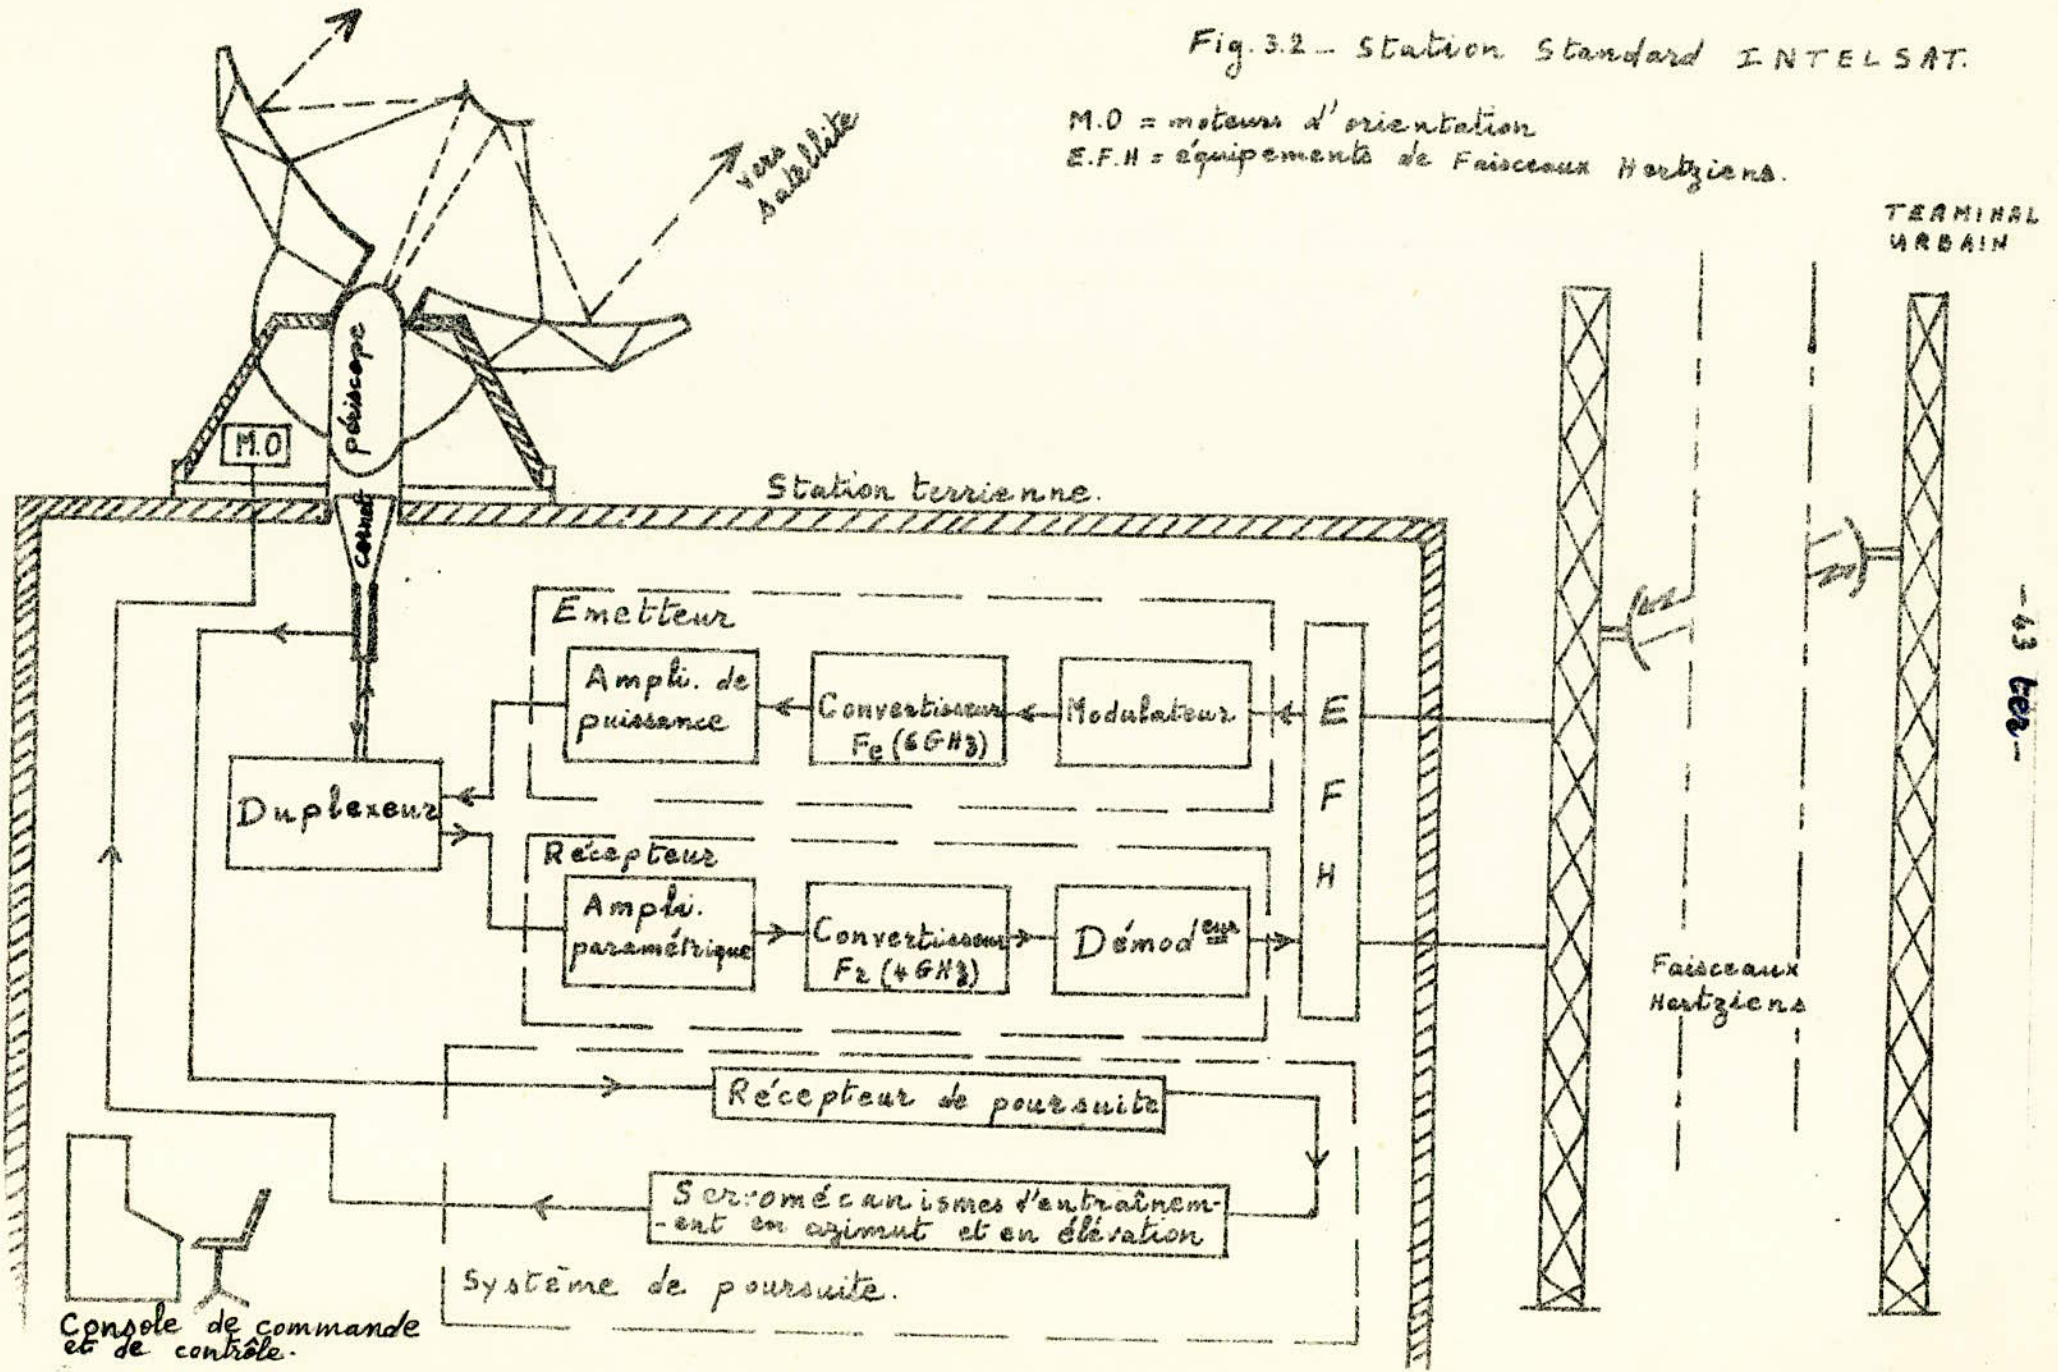 Fig. 3.2 _ Station Standard INTELSAT.
M.O = moteurs d'orientation
E.F.H = équipements de Faisceaux Hertziens.
vers
satellite
TERMINAL
URBAIN
périscope
M.O
cornet
Station terrienne.
Emetteur
Ampli. de
puissance
Convertisseur
Fe (6 GHz)
Modulateur
E
F
H
Duplexeur
Récepteur
Ampli.
paramétrique
Convertisseur
Fr (4 GHz)
Démod eur
Faisceaux
Hertziens
Récepteur de poursuite
Servomécanismes d'entraînem-
-ent en azimut et en élévation
Système de poursuite.
Console de commande
et de contrôle.
-43 ter-